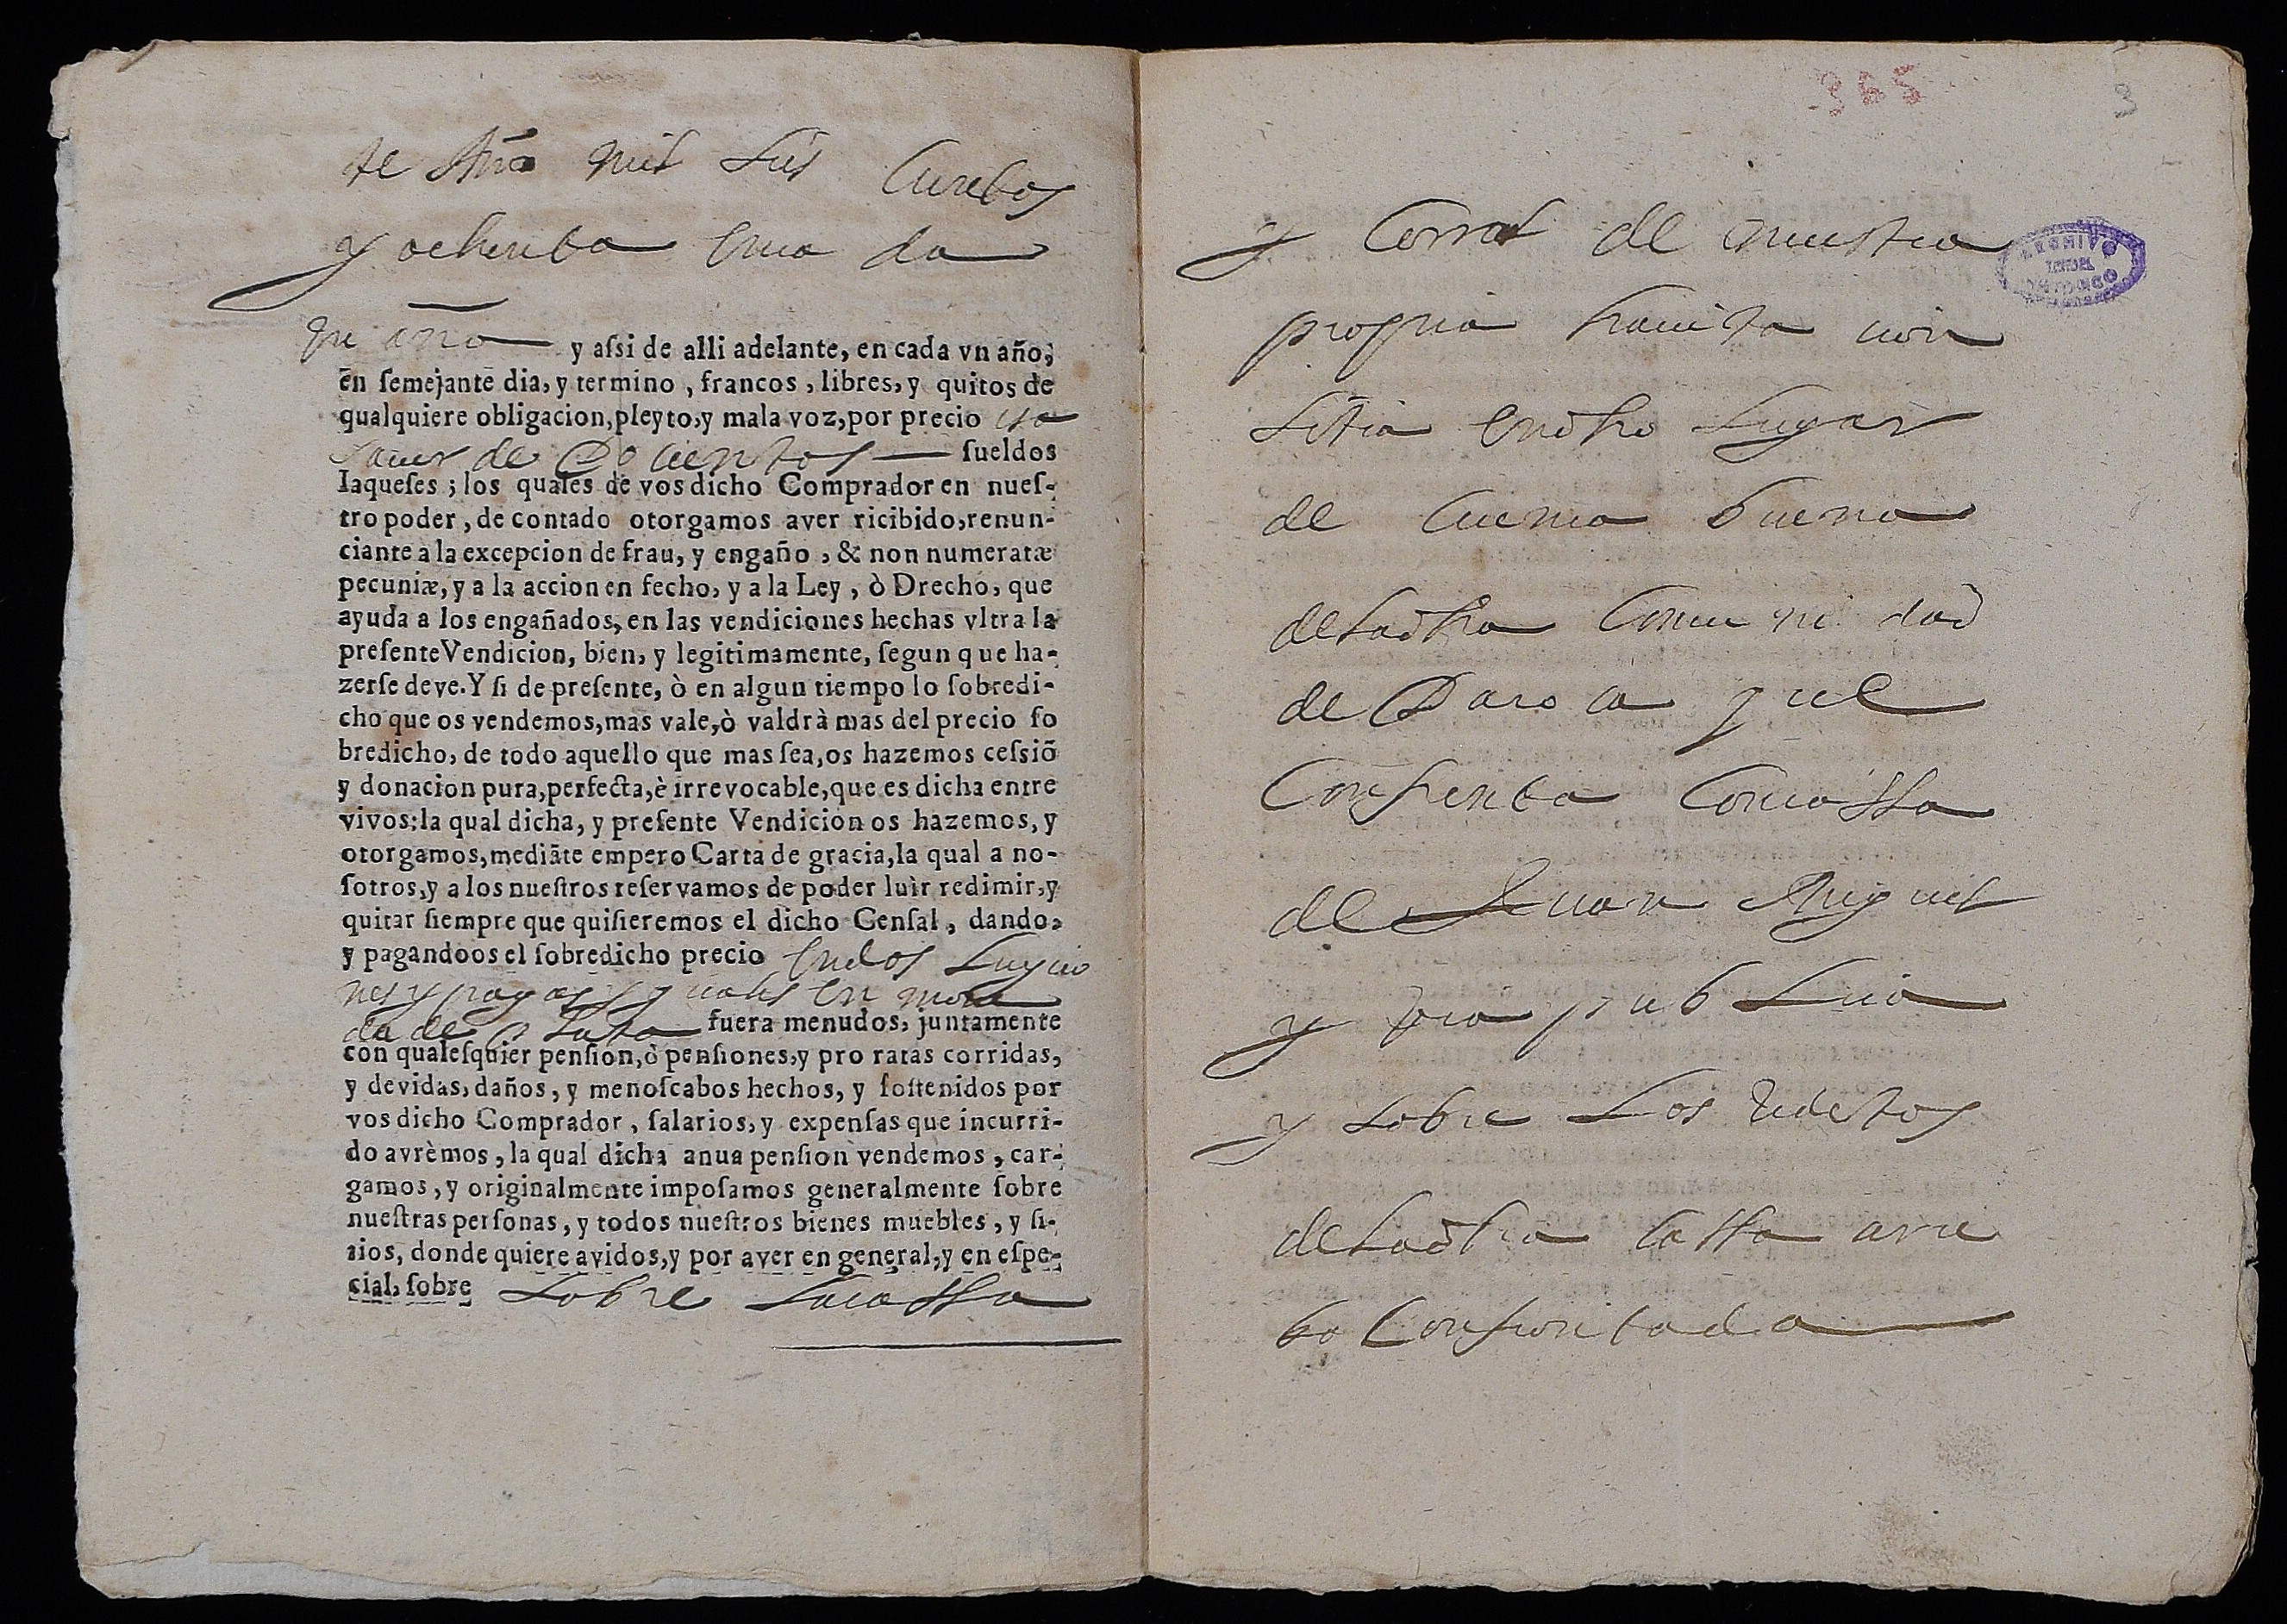 te Año mil seis Cientos
y ochenta en ca da
un año y aſsi de alli adelante, en cada vn año;
en ſemejante dia, y termino, francos, libres, y quitos de
qualquiere obligacion, pleyto, y mala voz, por precio es a
sauer de Docientos ſueldos
Iaqueſes; los quales de vos dicho Comprador en nueſ-
tro poder, de contado otorgamos aver ricibido, renun-
ciante a la excepcion de frau, y engaño, & non numeratæ
pecuniæ, y a la accion en fecho, y a la Ley, ò Drecho, que
ayuda a los engañados, en las vendiciones hechas vltra la
preſente Vendicion, bien, y legitimamente, ſegun que ha-
zerſe deve. Y ſi de preſente, ò en algun tiempo lo ſobredi-
cho que os vendemos, mas vale, ò valdrà mas del precio ſo
bredicho, de todo aquello que mas ſea, os hazemos ceſsiõ
y donacion pura, perfecta, è irrevocable, que es dicha entre
vivos: la qual dicha, y preſente Vendicion os hazemos, y
otorgamos, mediãte empero Carta de gracia, la qual a no-
ſotros, y a los nueſtros reſervamos de poder luir redimir, y
quitar ſiempre que quiſieremos el dicho Cenſal, dando,
y pagandoos el ſobredicho precio en dos Luycio
nes y pagas yguales en mone
da de plata fuera menudos, juntamente
con qualeſquier penſion, ò penſiones, y pro ratas corridas,
y devidas, daños, y menoſcabos hechos, y ſoſtenidos por
vos dicho Comprador, ſalarios, y expenſas que incurri-
do avrèmos, la qual dicha anua penſion vendemos, car-
gamos, y originalmente impoſamos generalmente ſobre
nueſtras perſonas, y todos nueſtros bienes muebles, y ſi-
tios, donde quiere avidos, y por aver en general, y en eſpe-
cial, ſobre sobre la cassa
365 3
y Corral de nuestra
propria hauita cion
Sitia en dho Lugar
de Cuenca buena
de la dha Comu ni dad
de Daroca que
Confrenta con cassa
de Juan Miguel
y via publica
y sobre Los
de la dha cassa arri
ba Confrontada
ARCHIVO